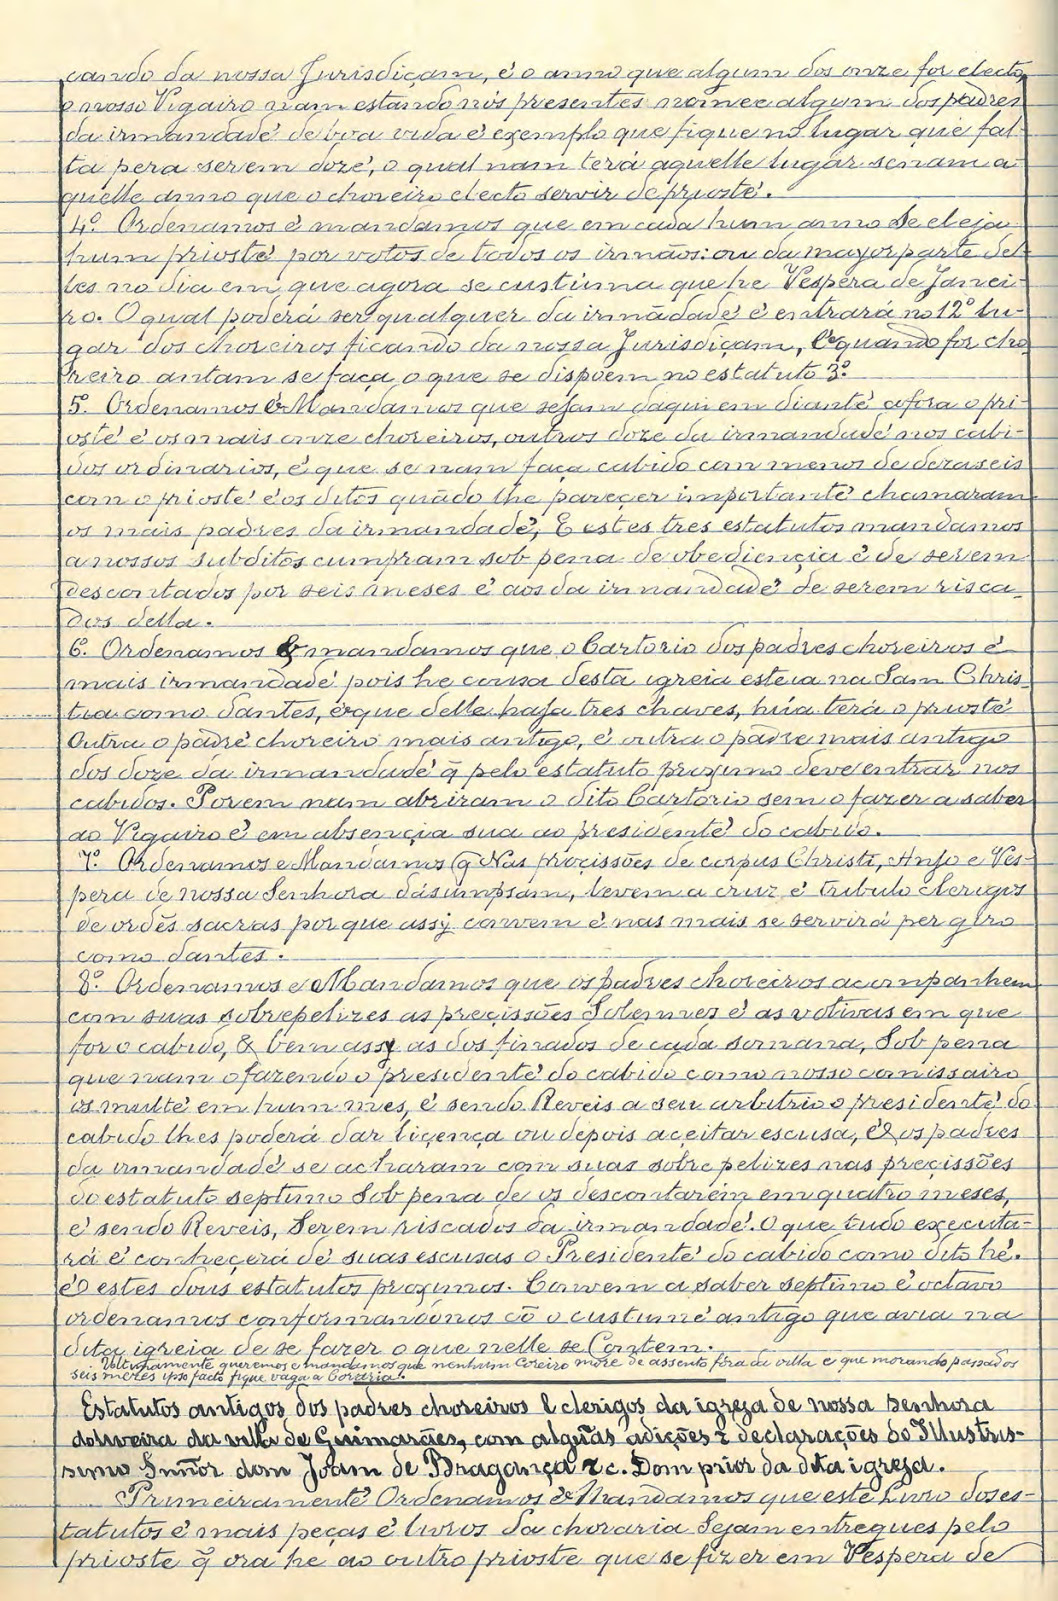 cando da nossa Jurisdiçam, é o anno que algum dos onze for electo,
o nosso Vigairo nam estando nós presentes nomee algum dos padres
da irmandadé de boa vida é exemplo que fique no lugar que fal-
ta pera serem dozé, o qual nam terá aquelle lugar senam a-
quelle anno que o choreiro electo servir de priosté.
4º Ordenamos é mandamos que em cada hum anno se eleja
hum priosté por votos de todos os irmãos: ou da mayor parte del-
les no dia em que agora se custuma que he Vespera de Janei-
ro. O qual poderá ser qualquer da irmãdadé é entrará no 12º lu-
gar dos choreiros ficando da nossa Jurisdiçam, & quando for cho-
reiro antam se faça o que se dispoem no estatuto 3º
5º Ordenamos & Mandamos que sejam daqui em dianté afora o pri-
osté é os mais onze choreiros, outros doze da irmandadé nos cabi-
dos ordinarios, é que se nam faça cabido com menos de dezaseis
com o priosté é os ditos quãdo lhe pareçer importanté chamaram
os mais padres da irmandadé, E estes tres estatutos mandamos
a nossos subditos cumpram sob pena de obediençia é de serem
descontados por seis meses é aos da irmandadé de serem risca-
dos della.
6º Ordenamos & mandamos que o Cartorio dos padres choreiros é
mais irmandadé pois he cousa desta igreia esteia na Sam Chris-
tia como dantes, & que delle haja tres chaves, hũa terá o priosté
Outra o padré choreiro mais antigo, é outra o padre mais antigo
dos doze da irmandadé q̃ pelo estatuto proximo deve entrar nos
cabidos. Porem nam abriram o dito Cartorio sem o fazer a saber
ao Vigairo é em absençia sua ao presidenté do cabido.
7º Ordenamos e Mandamos q̃ Nas proçissões de corpus Christi, Anjo e Ves-
pera de nossa Senhora dasumpsam, levem a cruz é tribulo clerigos
de ordẽs sacras por que assy convem é nas mais se servirá per giro
como dantes.
8º Ordenamos e Mandamos que os padres choreiros acompanhem
com suas sobrepelizes as preçissões Solemnes é as votivas em que
for o cabido, & bem assy as dos finados de cada somana, Sob pena
que nam o fazendo o presidenté do cabido como nosso comissairo
os multé em hum mes, é sendo Reveis a seu arbitrio o presidenté do
cabido lhes poderá dar liçença ou depois aceitar escusa, é os padres
da irmandadé se acharam com suas sobrepelizes nas preçissões
do estatuto septimo Sob pena de os descontarem em quatro meses,
é sendo Reveis, Serem riscados da irmandadé. O que tudo executa-
rá é conheçerá de suas escusas o Presidenté do cabido como dito hé.
é estes dous estatutos proximos. Convem a saber septimo é octavo
ordenamos conformandónos cõ o custumé antigo que avia na
dita igreia de se fazer o que nelle se Contem.
Ultimamente queremos e mandamos que nenhum Coreiro more de assento fóra da villa e que morando passados
seis mezes ipso facto fique vaga a Coraria.
Estatutos antigos dos padres choreiros & clerigos da igreja de nossa senhora
doliveira da villa de Guimarães, com alguãs adições & declarações do Illustris-
simo Sñnor dom Joam de Bragança & c. Dom prior da dita igreja.
Primeiramenté Ordenamos & Mandamos que este Livro dos es-
tatutos é mais peças é livros da choraria Sejam entregues pelo
prioste q̃ ora he ao outro prioste que se fizer em Vespera de